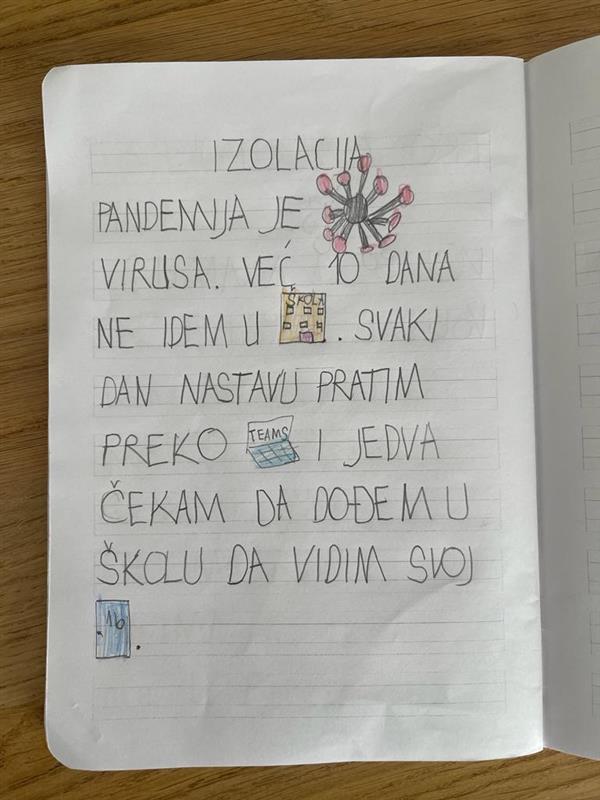 IZOLACIJA
PANDEMIJA JE
VIRUSA. VEĆ 10 DANA
ŠKOLA
NE IDEM U . SVAKI
DAN NASTAVU PRATIM
TEAMS
PREKO I JEDVA
ČEKAM DA DOĐEM U
ŠKOLU DA VIDIM SVOJ
1b .